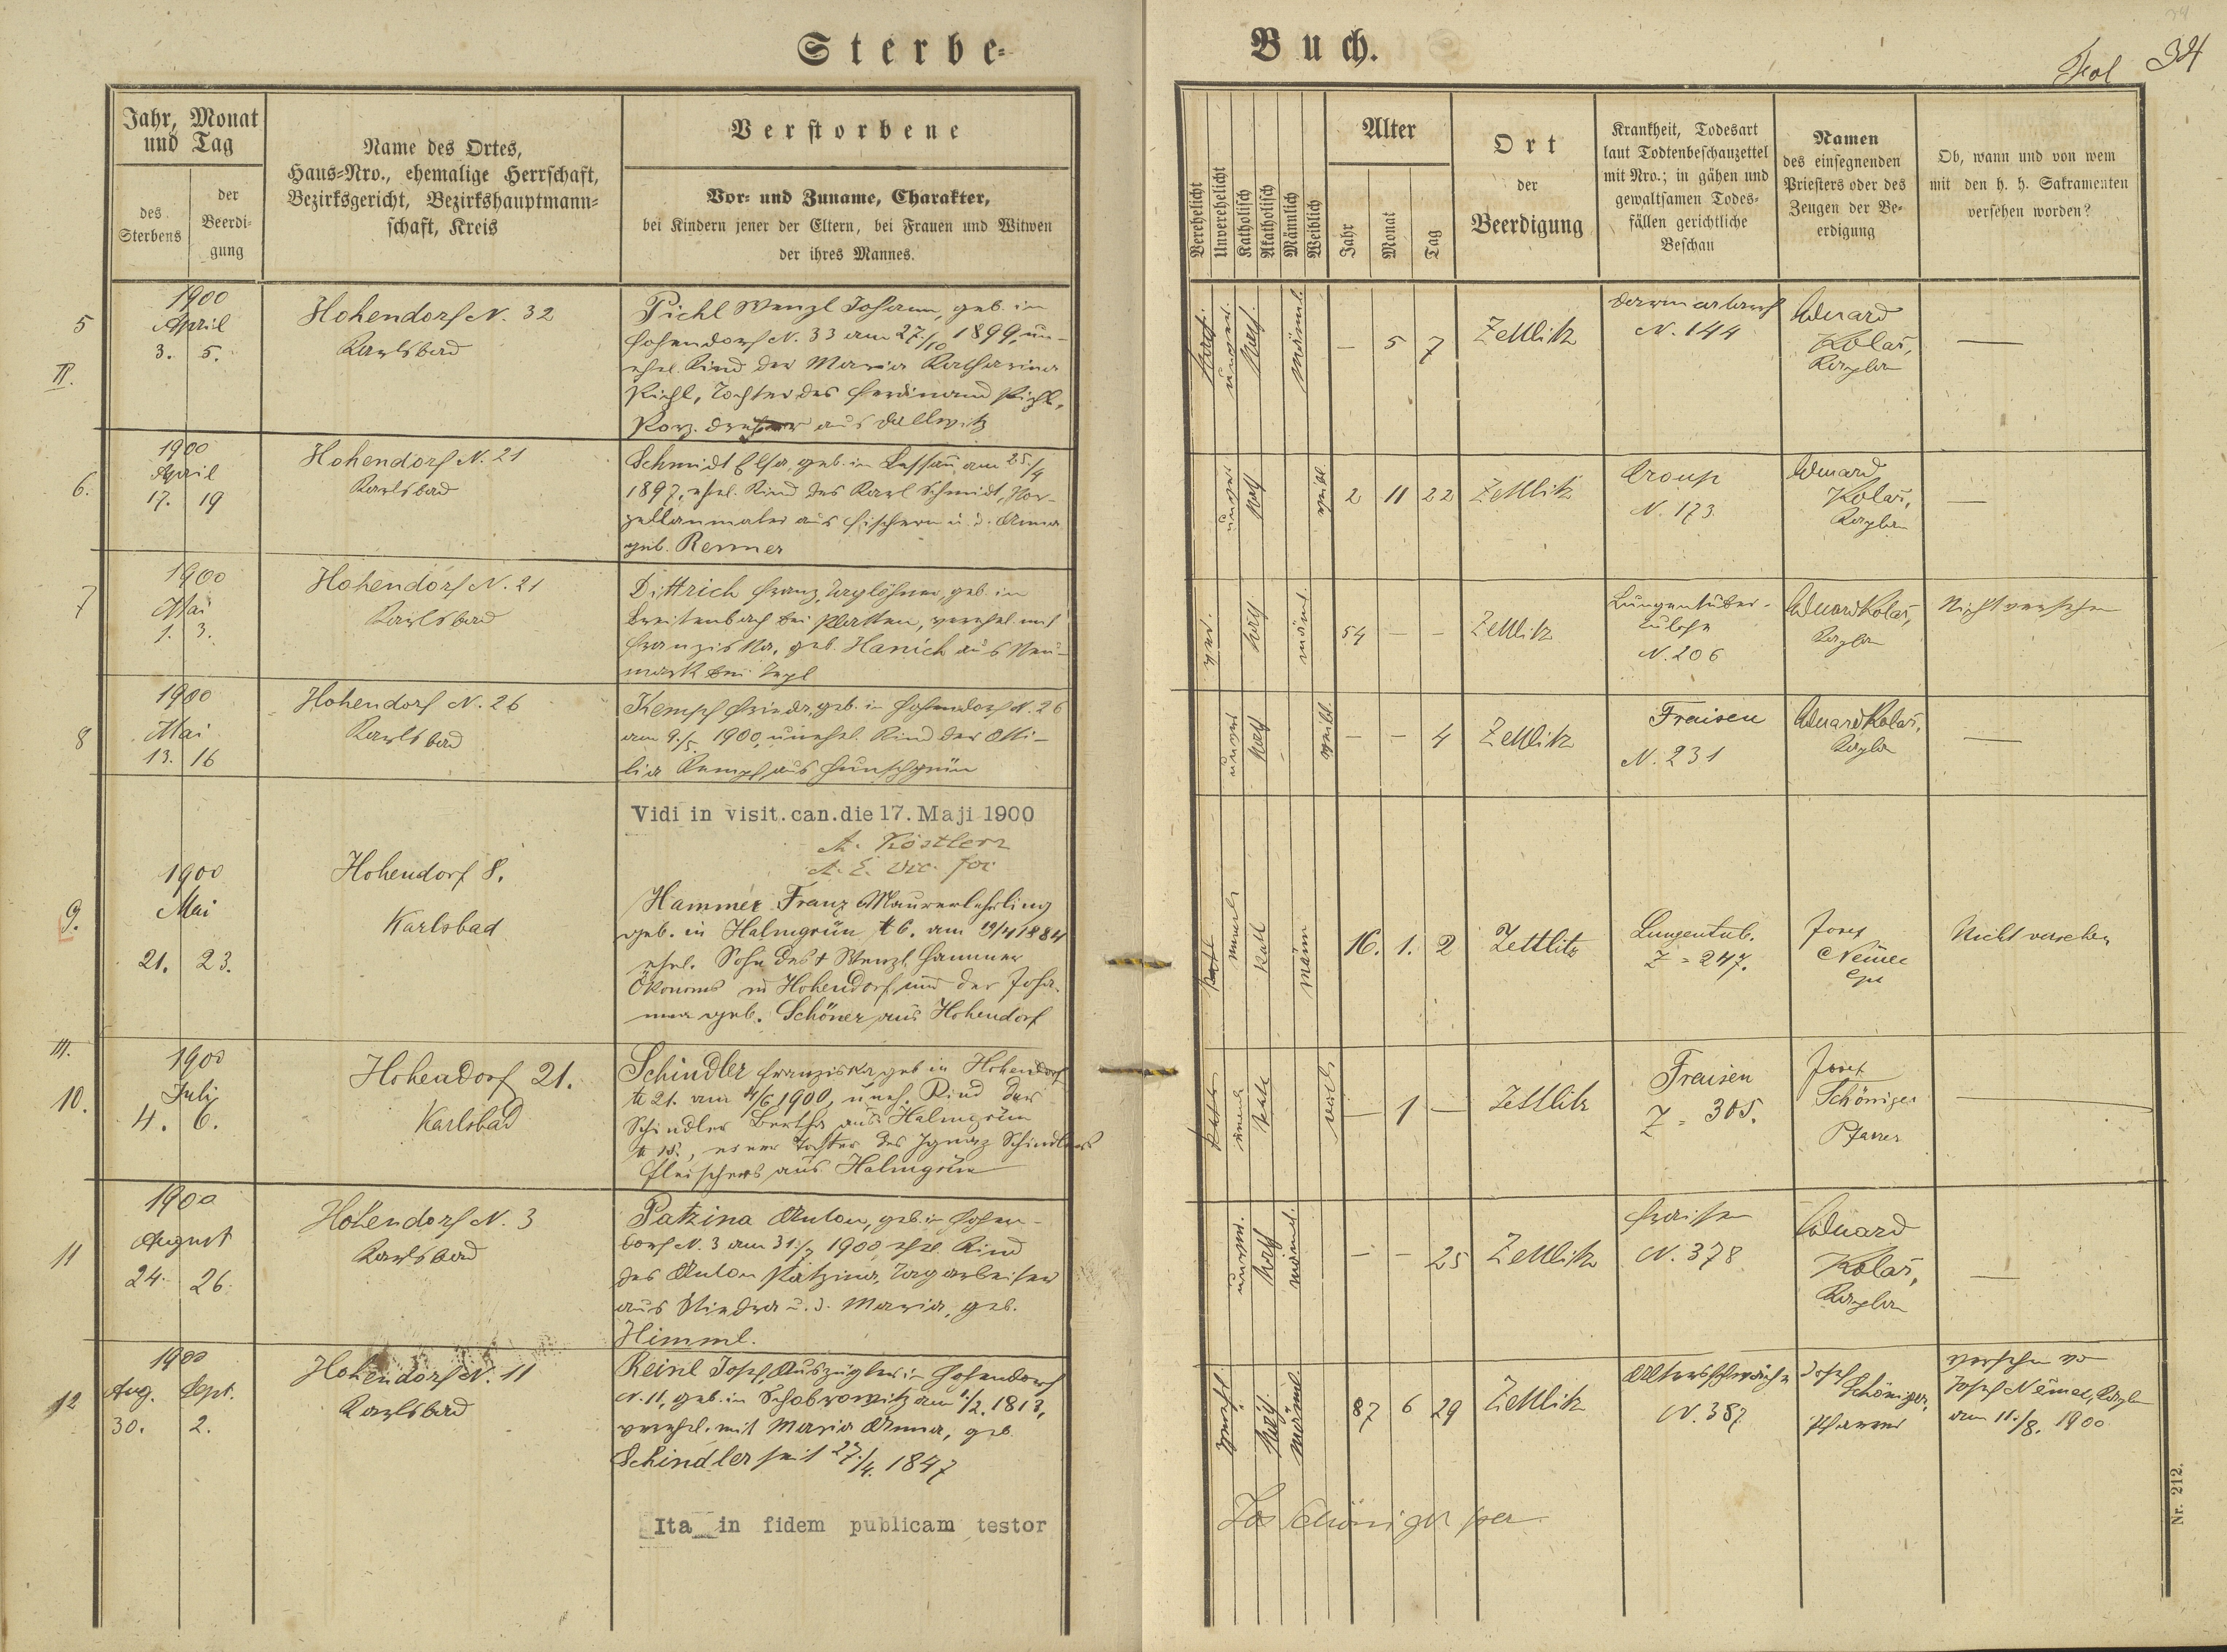 Sterbe-
Buch.
Fol 34
Jahr, Monat
und Tag
des
Sterbens
der
Beerdi-
gung
Name des Ortes,
Haus-Nro., ehemalige Herrschaft,
Bezirksgericht, Bezirkshauptmann-
schaft, Kreis
Verstorbene
Vor- und Zuname, Charakter,
bei Kindern jener der Eltern, bei Frauen und Witwen
der ihres Mannes.
Verehelicht
Unverehelicht
Katholisch
Akatholisch
Männlich
Weiblich
Alter
Jahr
Monat
Tag
Ort
der
Beerdigung
Krankheit, Todesart
laut Todtenbeschauzettel
mit Nro.; in gähen und
gewaltsamen Todes-
fällen gerichtliche
Beschau
Namen
des einsegnenden
Priesters oder des
Zeugen der Be-
erdigung
Ob, wann und von wem
mit den h. h. Sakramenten
versehen worden?
5
II.
1900
April
3. 5.
Hohendorf N. 32
Karlsbad
Pichl Wenzl Johann, geb. in
Hohendorf N. 33 am 27./10 1899, un-
ehel. Kind der Maria Katharina
Pichl, Tochter des Ferdinand Pichl,
Porz. dreher aus Dallwitz
unver.
kath.
männl.
— 5 7
Zettlitz
Darmcatarrh
N. 144
Eduard
Kolař,
Kaplan
—
6.
1900
April
17. 19
Hohendorf N. 21
Karlsbad
Schmidt Elsa, geb. in Lessau, am 25./4
1897, ehel. Kind des Karl Schmidt, Por-
zellanmaler aus Fischern u. d. Anna
geb. Renner
unver
kath
weibl.
2 11 22
Zettlitz
Croup
N. 173.
Eduard
Kolař,
Kaplan
—
7
1900
Mai
1. 3.
Hohendorf N. 21
Karlsbad
Dittrich Franz, Taglöhner, geb. in
Breitenbach bei Platten, verehel. mit
Franziska, geb. Hanich aus Neu-
mark bei Tepl
ver.
kath.
männl.
54 — —
Zettlitz
Lungentuber-
culose
N. 206
Eduard Kolař,
Kaplan
Nicht versehen
8
1900
Mai
13. 16
Hohendorf N. 26
Karlsbad
Kempf Frieda, geb. in Hohendorf N. 26
am 9./5. 1900, unehel. Kind der Otti-
lia Kempf aus
unver
kath
weibl.
— — 4
Zettlitz
Fraisen
N. 231
Eduard Kolař,
Kaplan
—
Vidi in visit. can. die 17. Maji 1900
A. Köstler
9.
1900
Mai
21. 23.
Hohendorf 8.
Karlsbad
Hammer Franz Maurerlehrling
geb. in Halmgrün N 6. am 19/4 1884
ehel. Sohn des † Wenzl Hammer
Ökonoms in Hohendorf und der Joha-
nna geb. Schöner aus Hohendorf
kath
männ
16. 1. 2
Zettlitz
Lungentub.
Z = 247.
Josef
Němec
Nicht versehen
III.
10.
1900
Juli
4. 6.
Hohendorf 21.
Karlsbad
Schindler Franziska geb in Hohendorf
N 21. am 4/6 1900, uneh. Kind der
Schindler Bertha aus Halmgrün
N 15., einer Tochter des Ignaz Schindlers
Fleischers aus Halmgrün
kath
weibl
— 1 —
Zettlitz
Fraisen
Z = 305.
Josef
Schöniger
Pfarrer
—
11
1900
August
24. 26.
Hohendorf N. 3
Karlsbad
Patzina Anton, geb. in Hohen-
dorf N. 3 am 31./7 1900, ehel. Kind
des Anton Patzina, Tagarbeiter
aus Stiedra u. d. Maria, geb.
Himml.
unver.
kath
männl.
— — 25
Zettlitz
Fraisen
N. 378
Eduard
Kolař,
Kaplan
—
12
1900
Aug. Sept.
30. 2.
Hohendorf N. 11
Karlsbad
Reinl Josef, Auszügler in Hohendorf
N. 11, geb. in Schobrowitz am 1./2. 1813,
verehel. mit Maria Anna, geb
Schindler seit 27./4. 1847
verehl.
kath.
männl.
87 6 29
Zettlitz
Altersschwäche
N. 387
Josef
Schöniger,
Pfarrer
versehen von
Josef Němec, Kaplan
am 11./8. 1900
Ita in fidem publicam testor
Jos Schöniger
Nr. 212.